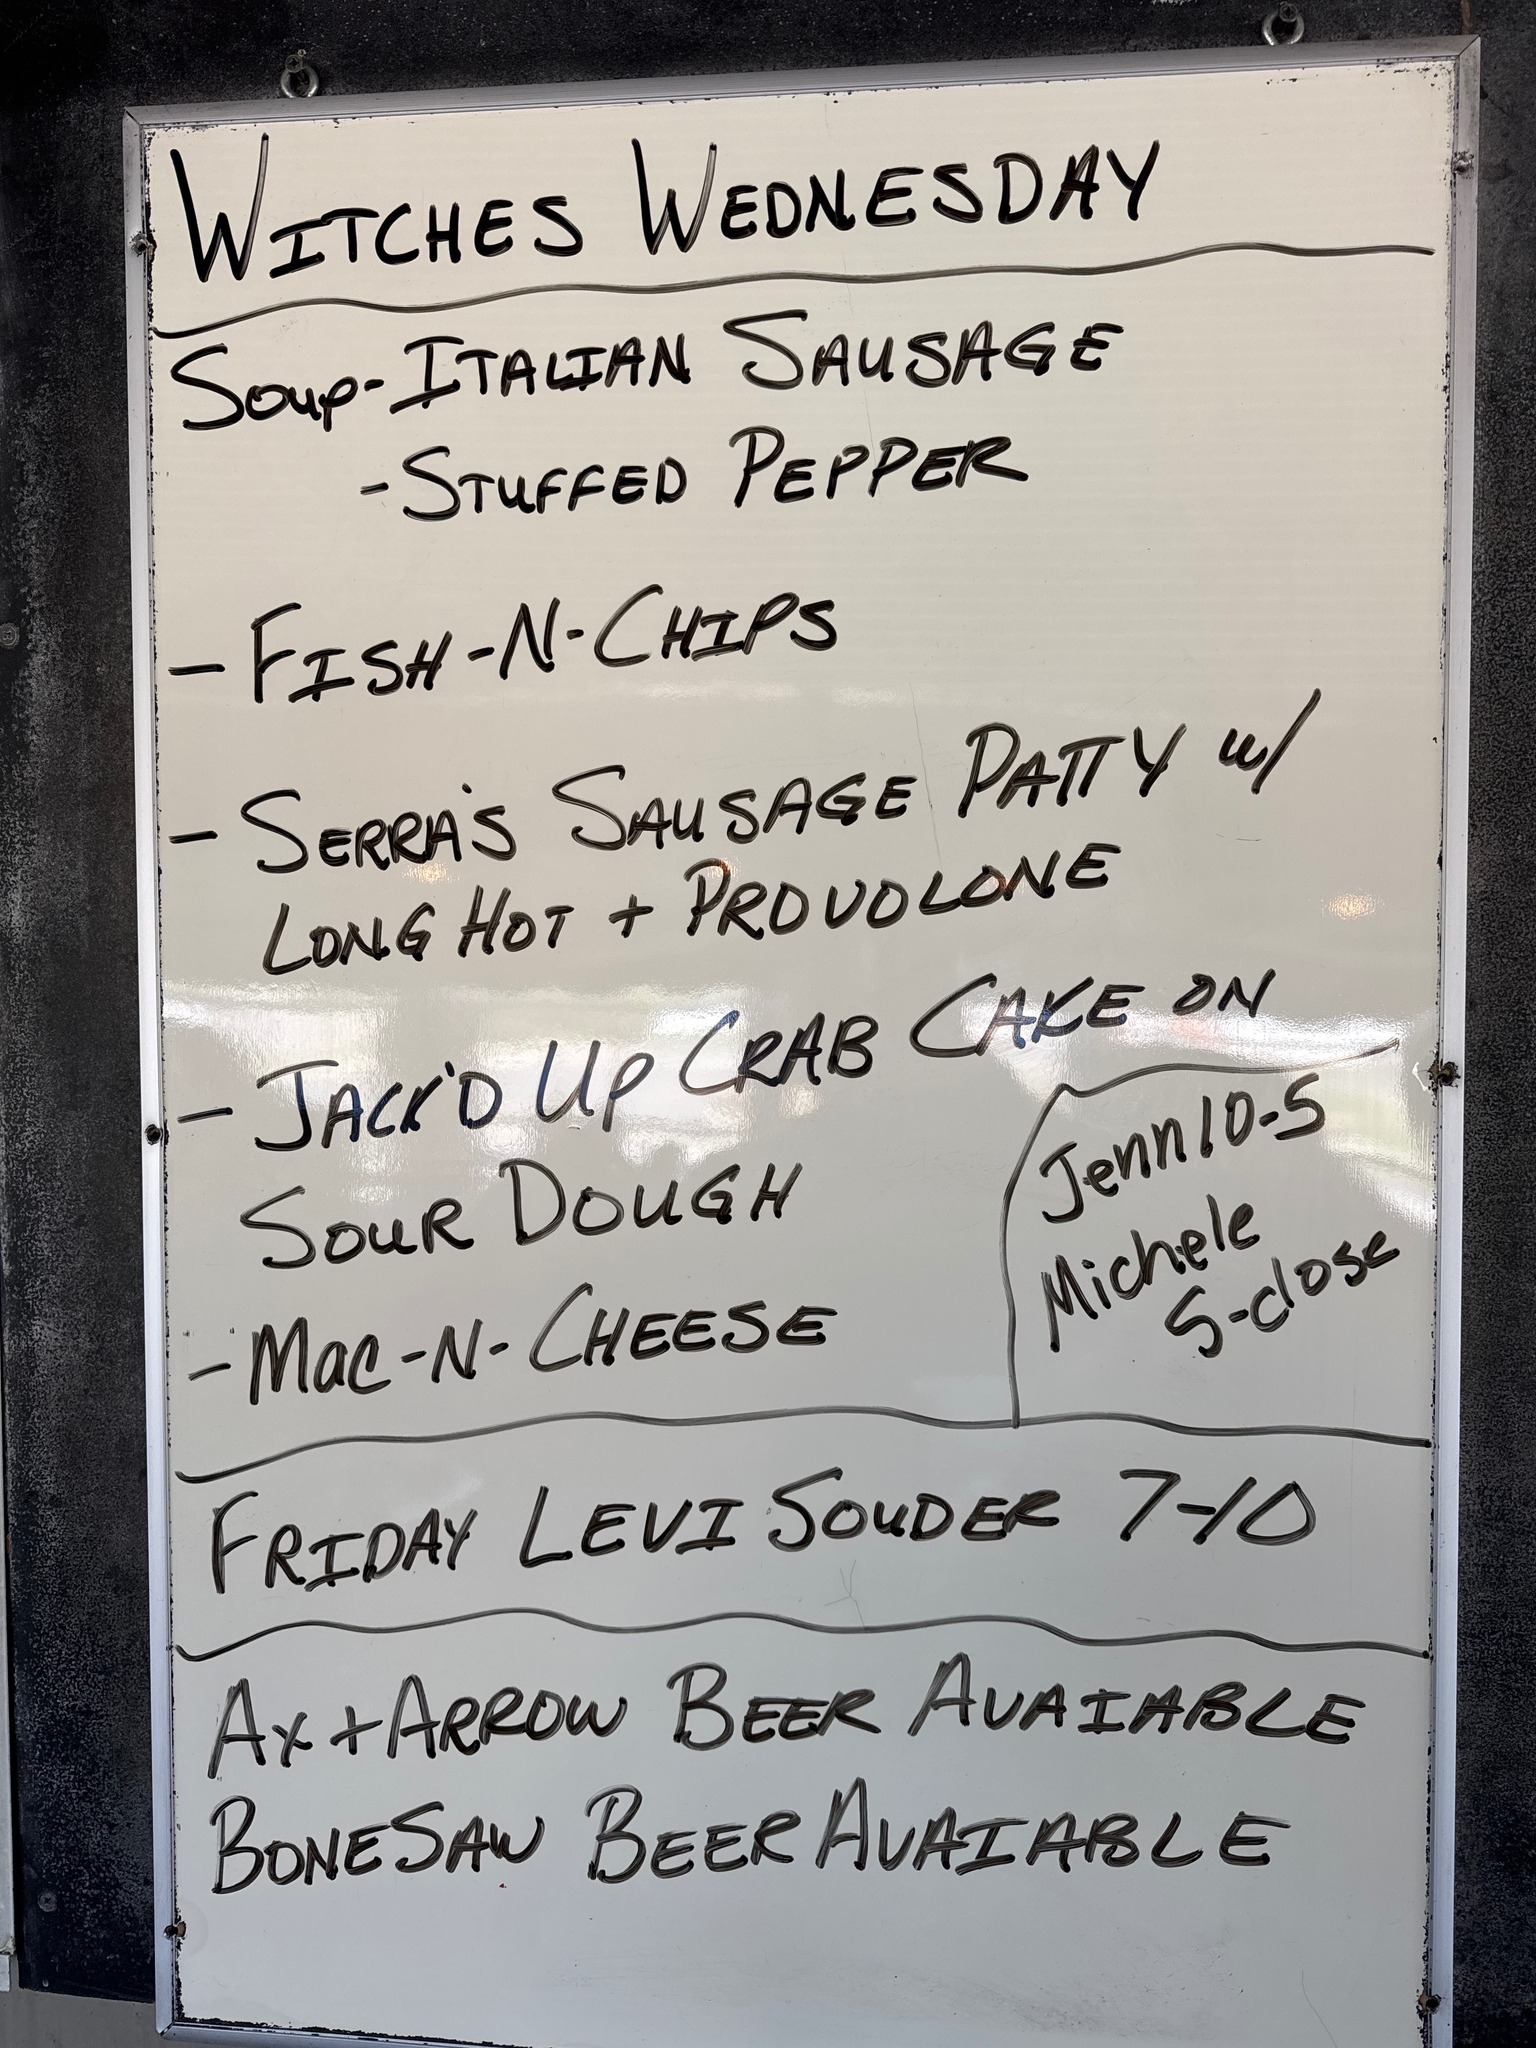 WITCHES WEDNESDAY
Soup-ITALIAN SAUSAGE
-STUFFED PEPPER
-FISH-N-CHIPS
-SERRA'S SAUSAGE PATTY w/
LONG HOT + PROVOLONE
-JACK'D UP CRAB CAKE ON
SOUR DOUGH
-MAC-N-CHEESE
Jenn 10-5
Michele
5-close
FRIDAY LEVI SOUDER 7-10
AX+ARROW BEER AVAIABLE
BONESAW BEER AVAIABLE